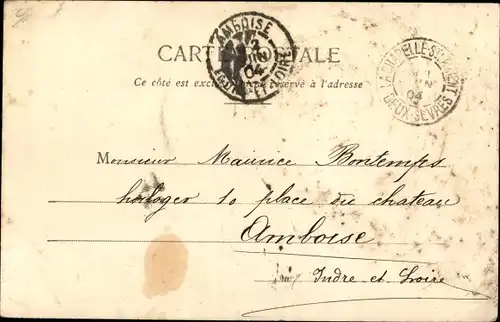 CARTE POSTALE
Ce côté est exclusivement réservé à l'adresse
AMBOISE
2
JUIN
04
INDRE-ET-LOIRE
LA CHAPELLE-ST-LAURENT
04
DEUX-SÈVRES
Monsieur Maurice Bontemps
horloger 10 place du chateau
Amboise
Indre et Loire